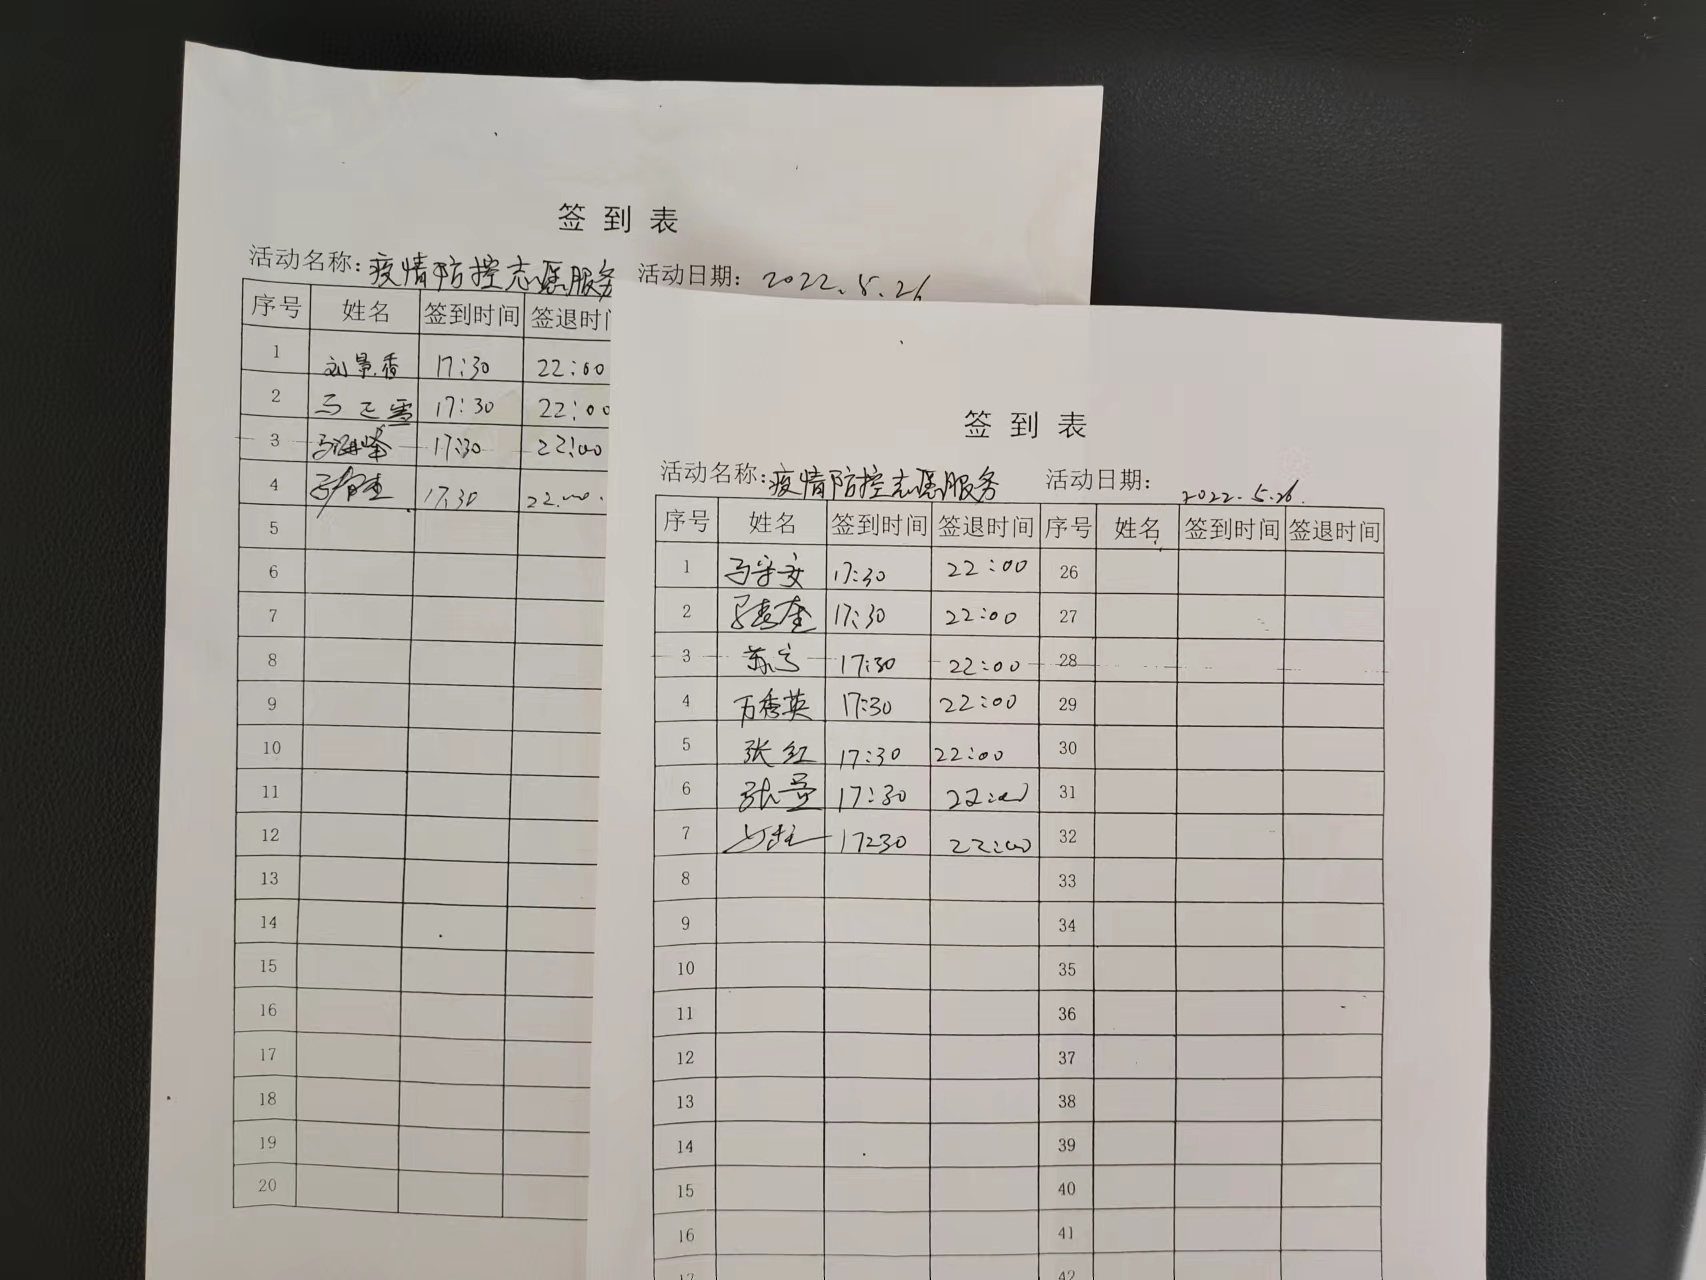 签到表
活动名称:疫情防控志愿服务 活动日期: 2022.5.26
序号 姓名 签到时间 签退时
1 刘景香 17:30 22:00
2 马 17:30 22:00
3 马海峰 17:30 22:00
4 17:30 22:00
5
6
7
8
9
10
11
12
13
14
15
16
17
18
19
20
签到表
活动名称:疫情防控志愿服务 活动日期: 2022.5.26
序号 姓名 签到时间 签退时间 序号 姓名 签到时间 签退时间
1 马守安 17:30 22:00 26
2 17:30 22:00 27
3 17:30 22:00 28
4 万秀英 17:30 22:00 29
5 张红 17:30 22:00 30
6 17:30 22:00 31
7 17:30 22:00 32
8 33
9 34
10 35
11 36
12 37
13 38
14 39
15 40
16 41
17 42